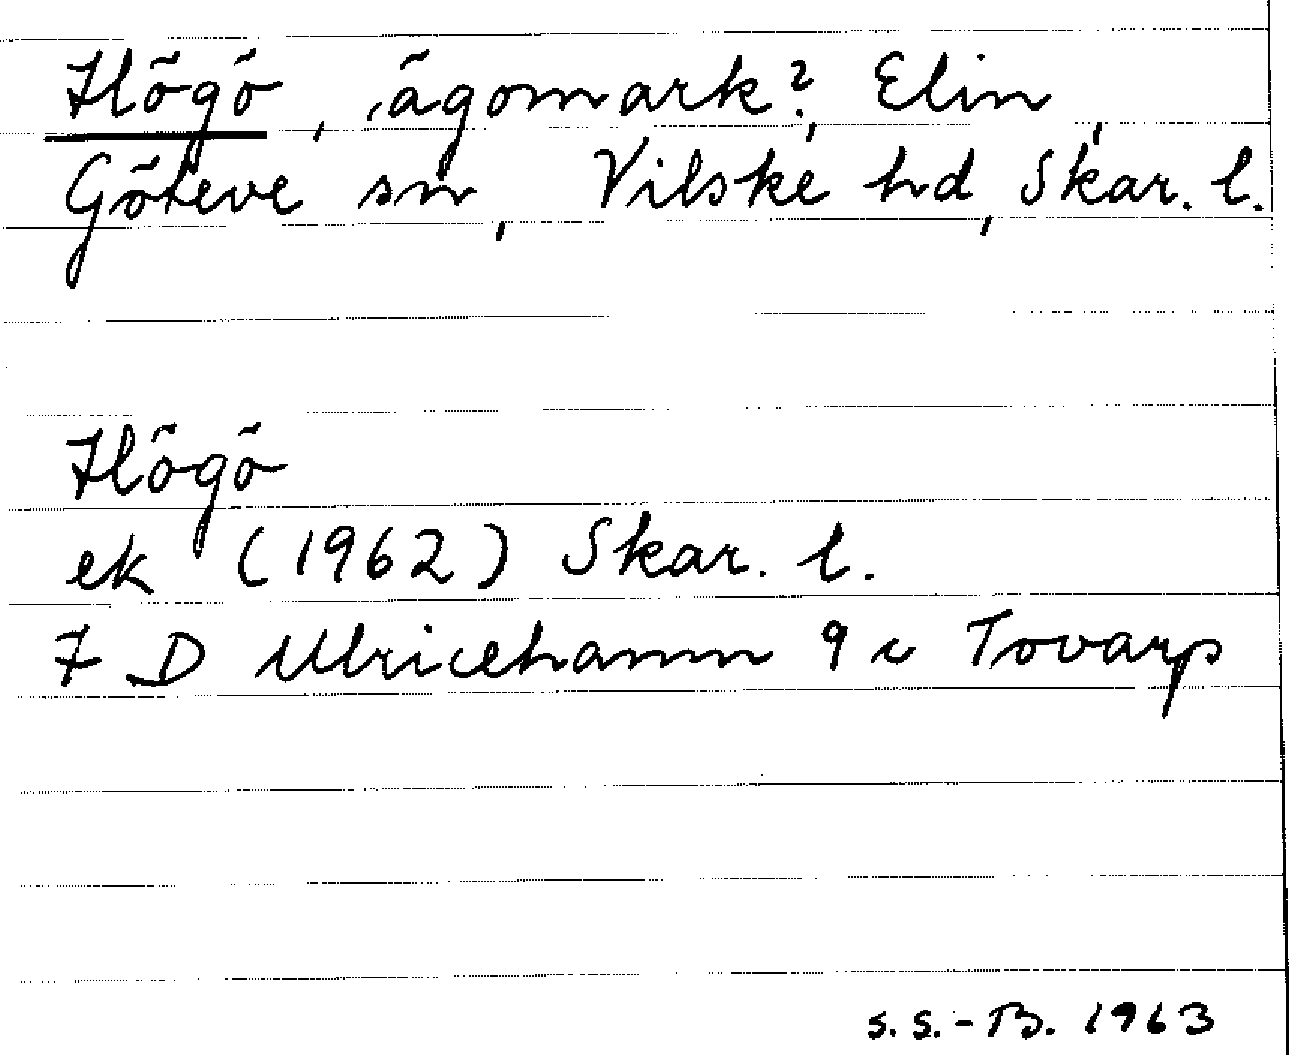 Högö, ägomark?, Elin,
Göteve sn, Vilske hd, Skar. l.
Högö
ek (1962) Skar. l.
7 D Ulricehamn 9 c Tovarp
S. S.-B. 1963